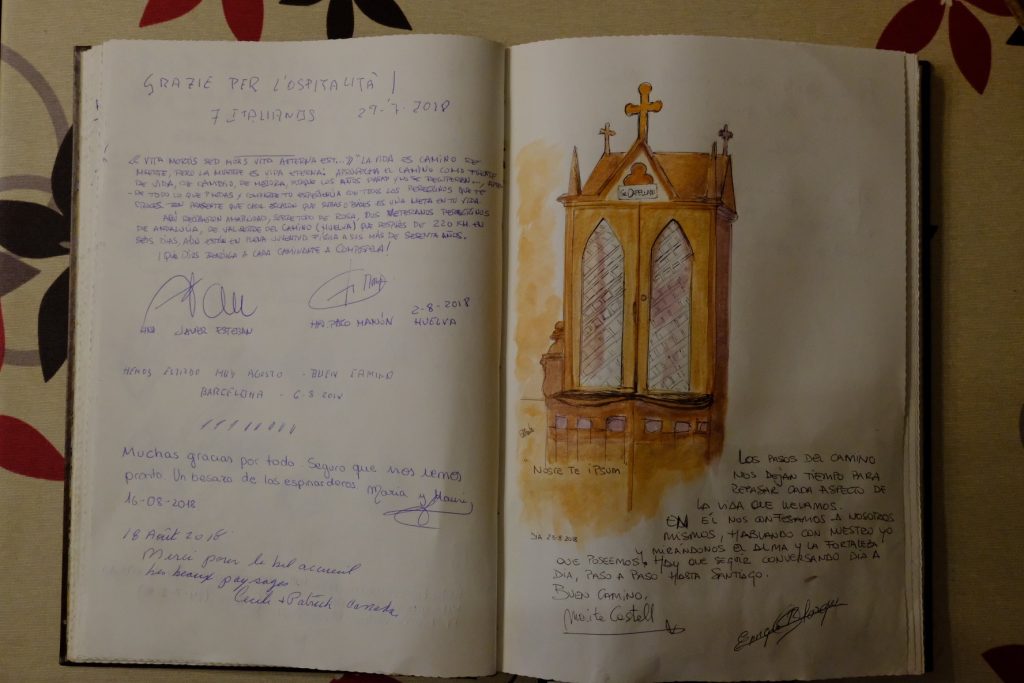 GRAZIE PER L'OSPITALITÀ!
7 ITALIANOS 29-7-2018
VITA MORTIS SED MORS VITA AETERNA EST...》 "LA VIDA ES CAMINO DE
MUERTE, PERO LA MUERTE ES VIDA ETERNA. APROVECHA EL CAMINO COMO
DE VIDA, DE CAMBIO, DE MEJORA, PORQUE LOS AÑOS NO SE RECUPERAN...,
DE TODO LO QUE PUEDAS Y COMPARTE TU EXPERIENCIA CON TODOS LOS PEREGRINOS QUE TE
CRUCES. TEN PRESENTE QUE CADA ESCALÓN QUE SUBAS O BAJES ES UNA META EN TU VIDA.
AQUÍ RECIBIERON AMABILIDAD, SOBRE TODO DE ROSA, DOS VETERANOS PEREGRINOS
DE ANDALUCÍA, DE VALVERDE DEL CAMINO (HUELVA) QUE DESPUÉS DE 220 KM. EN
SEIS DÍAS, AÚN ESTÁN EN PLENA JUVENTUD FÍSICA A SUS MÁS DE SESENTA AÑOS.
¡QUE DIOS BENDIGA A CADA CAMINANTE A COMPOSTELA!
JAVIER ESTEBAN
PACO MARÚN
2-8-2018
HUELVA
HEMOS ESTADO MUY AGUSTO - BUEN CAMINO
BARCELONA - 6-8-2018
Muchas gracias por todo. Seguro que nos vemos
pronto. Un besazo de los espinarderos. Maria y
16-08-2018
18 Août 2018
Merci pour le bel accueil
les beaux paysages
Cecile + Patrick
CAPELLAN
NOSCE TE IPSUM
DIA 23-8-2018
LOS PASOS DEL CAMINO
NOS DEJAN TIEMPO PARA
REPASAR CADA ASPECTO DE
LA VIDA QUE LLEVAMOS.
EN EL NOS CONFESAMOS A NOSOTROS
MISMOS, HABLANDO CON NUESTRO YO
Y MIRANDONOS EL ALMA Y LA FORTALEZA
QUE POSEEMOS. HAY QUE SEGUIR CONVERSANDO DIA A
DIA, PASO A PASO HASTA SANTIAGO.
BUEN CAMINO,
Maite Costell